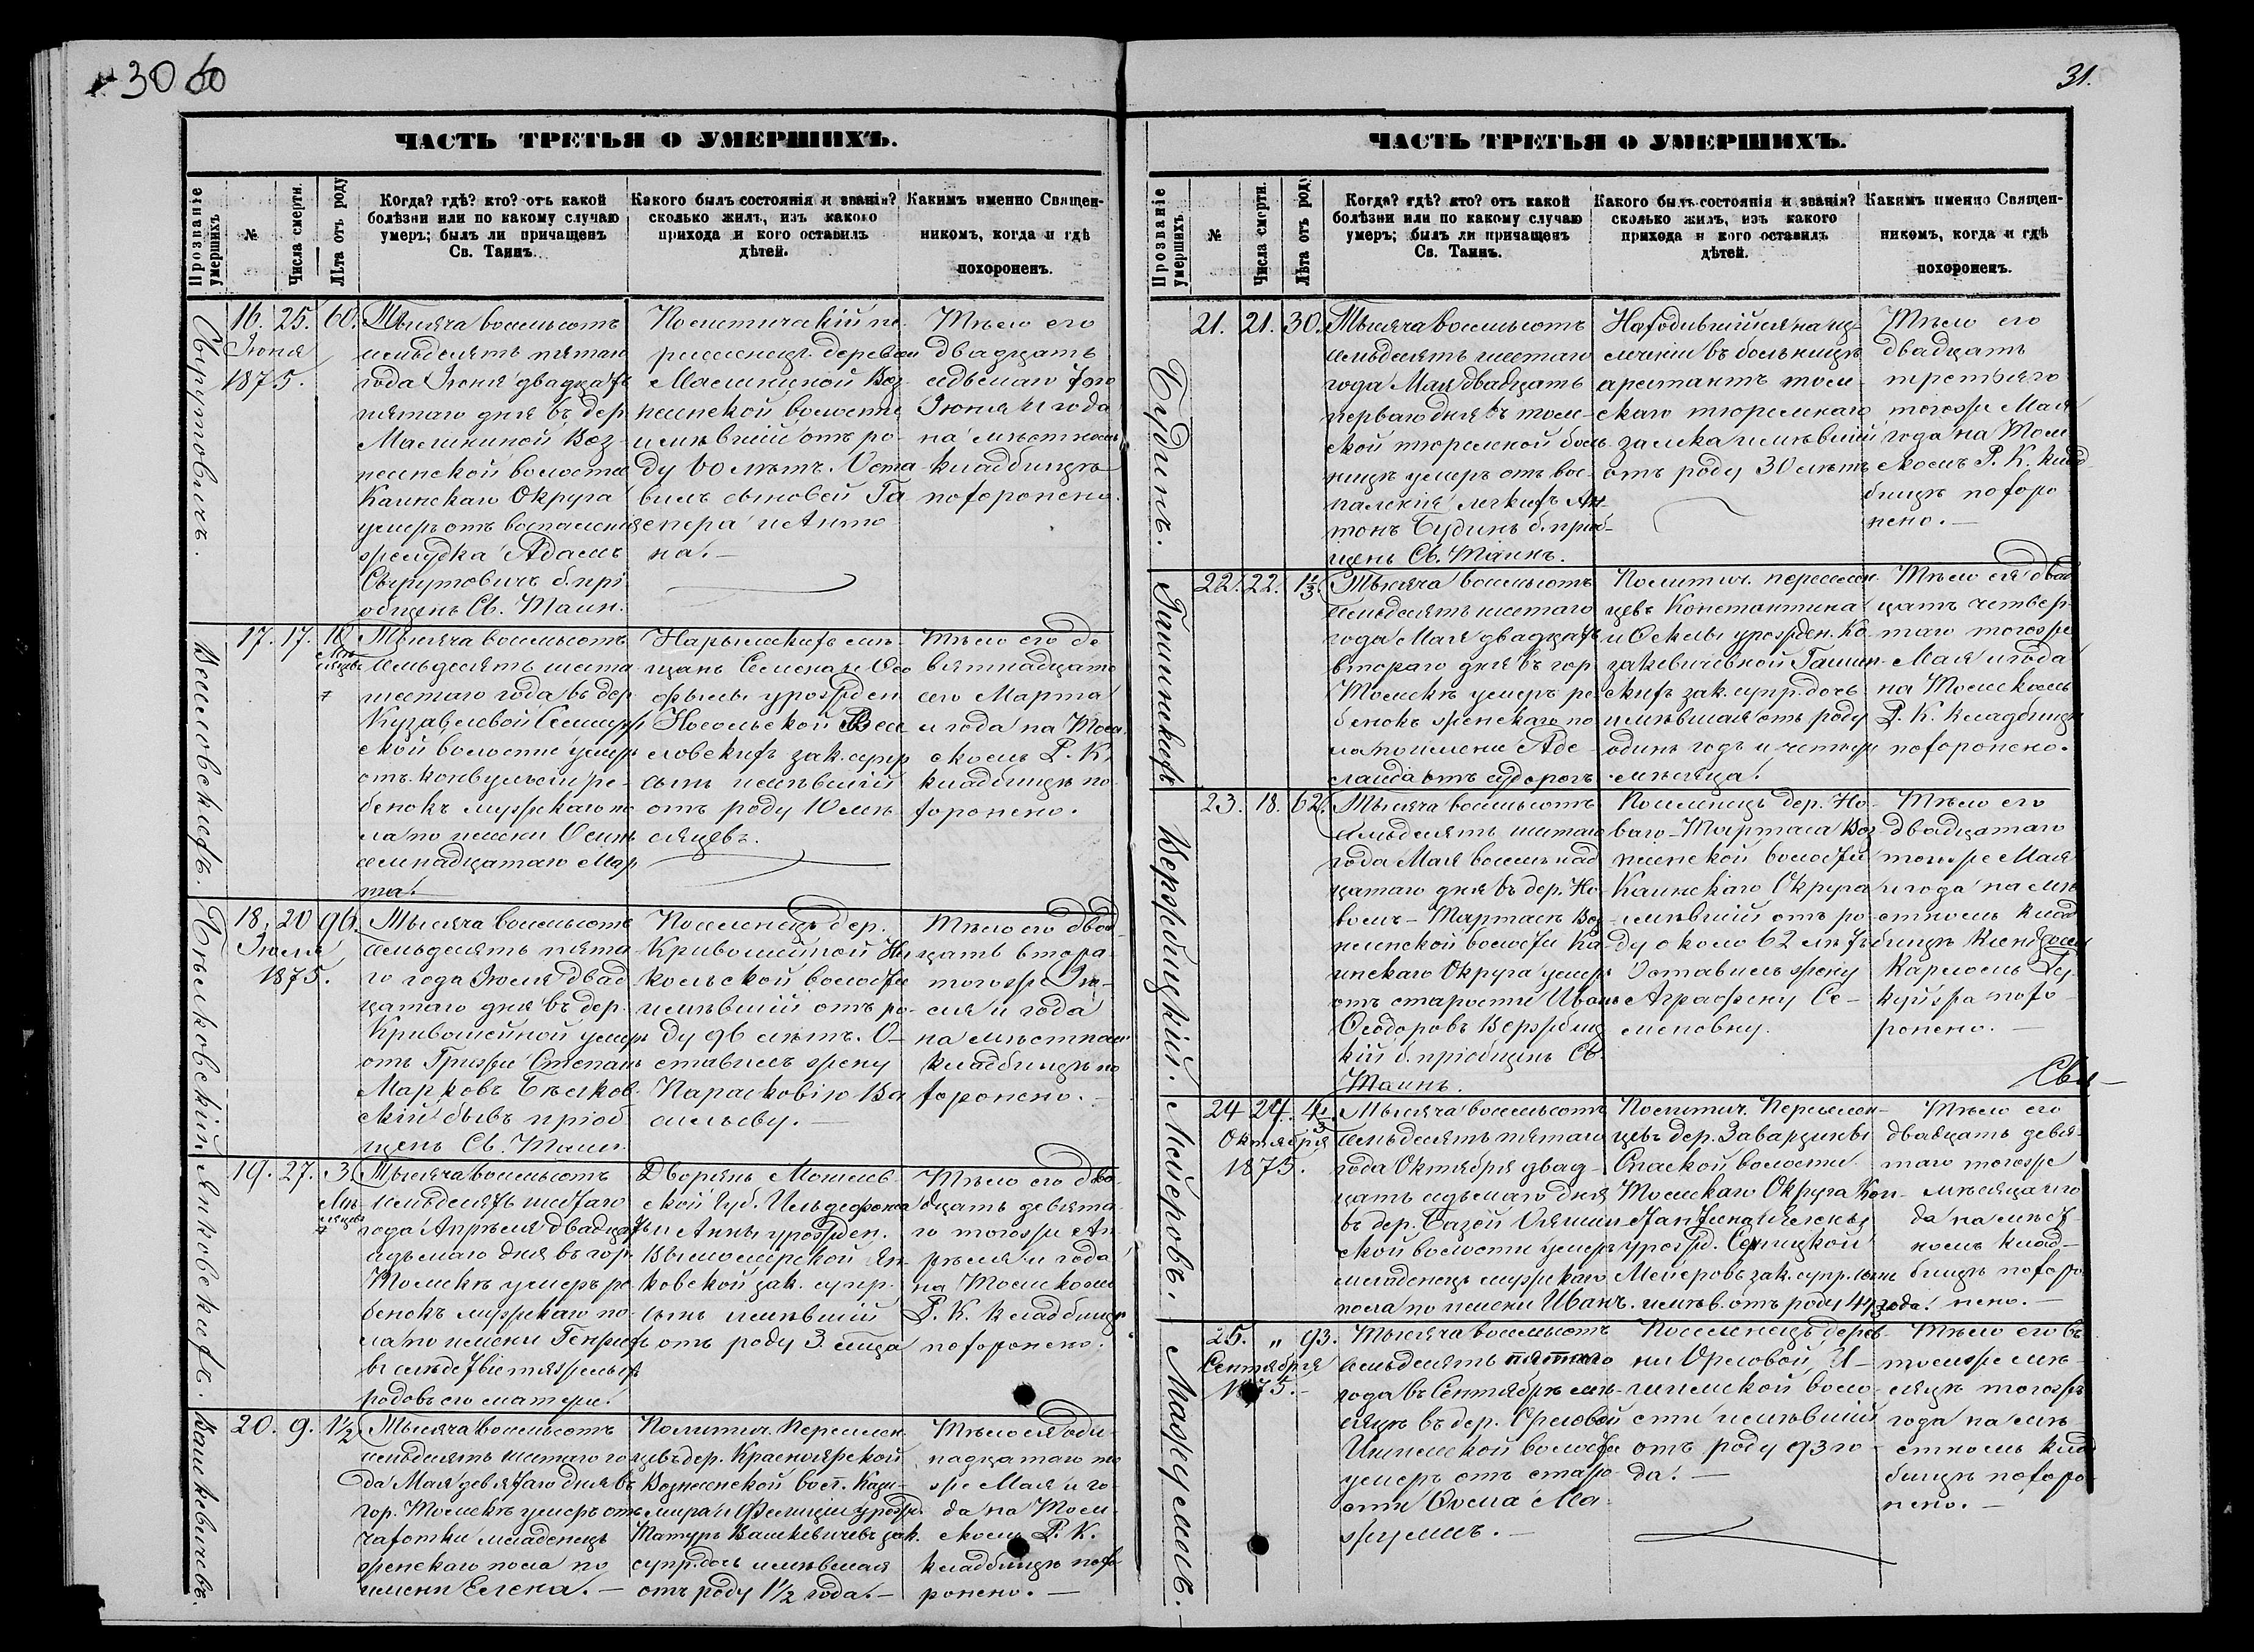 30 об
ЧАСТЬ ТРЕТЬЯ О УМЕРШИХЪ.
Прозваніе умершихъ
№
Числа смерти.
Лѣта отъ роду
Когда? гдѣ? кто? отъ какой
болѣзни или по какому случаю
умеръ; былъ ли причащенъ
Св. Таинъ.
Какого былъ состоянія и званія?
сколько жилъ, изъ какого
прихода и кого оставилъ
дѣтей.
Какимъ именно Священ-
никомъ, когда и гдѣ
похороненъ.
16. 25. 60.
Іюня
1875.
Тысяча восемьсотъ
семьдесятъ пятаго
года Іюня двадцать
пятаго дня въ дер.
Маслининой Воз-
несенской волости
Каинскаго Округа
умеръ отъ воспаленія
желудка Адамъ
б. прі
общенъ Св. Таин.
Политическій пе-
реселенецъ деревни
Воз-
несенской волости
имѣвшій отъ ро-
ду 60 лѣтъ. Оста
вилъ сыновей Га
спера и Анто
на. —
Тѣло его
двадцать
седьмаго того
Іюня и года
на мѣстномъ
кладбищѣ
похоронено.
17. 17. 10
мѣ-
сяцевъ
Тысяча восемьсотъ
семьдесятъ шеста
шестаго года въ дер
волости умеръ
отъ конвульсіи ре-
бенокъ мужскаго по
ла по имени Осипъ
семнадцатаго Мар
та. —
Нарымскихъ мѣ-
щанъ Семена и
урожден
зак. супр
сынъ имѣвшій
отъ роду 10 мѣ-
сяцевъ.
Тѣло его де
вятнадцато
сего Марта
и года на Том
скомъ Р. К.
кладбищѣ по-
хоронено.
Веселовскихъ.
18. 20 96.
Іюль
1875.
Тысяча восемьсотъ
семьдесятъ пята
го года Іюля двад
цатаго дня въ дер.
Кривошеиной умеръ
отъ Грыжи Степанъ
Марковъ Бѣлков
скій бывъ пріоб
щенъ Св. Таин.
Поселенецъ дер.
Кривошеиной Ни
кольской волости
имѣвшій отъ ро-
ду 96 лѣтъ. О-
ставилъ жену
Парасковію Ва
сильеву. —
Тѣло его двад
цать втора-
тогоже Ію-
ля и года
на мѣстномъ
кладбищѣ по
хоронено. —
19. 27. 3.
Мѣ-
сяцевъ
Тысяча восемьсотъ
семьдесятъ шестаго
года Апрѣля двадцать
седьмаго дня въ гор.
Томскѣ умеръ ре
бенокъ мужскаго по-
ла по имени Генрихъ
вслѣдствіе тяжелыхъ
родовъ его матери.
Дворянъ Могилев-
ской Губ. Ильдефонса
и Анны урожден.
Ян-
ковской зак. супр.
сынъ имѣвшій
отъ роду 3. мѣсяца
Тѣло его два-
дцать девята
го тогоже Ап-
рѣля и года
на Томскомъ
Р. К. кладбищѣ
похоронено.
Янковскихъ.
20. 9. 1½
Тысяча восемьсотъ
семьдесятъ шестаго го
да Мая девятаго дня въ
гор. Томскѣ умеръ отъ
чахотки младенецъ
женскаго пола по
имени Елена. —
Политич. Переселен-
цевъ дер. Красноярской
Вознесенской вол. Кази-
мира и Фелиціи урожд.
Вашкевичевъ зак.
супр. дочь имѣвшая
отъ роду 1½ года. —
Тѣло ея оди-
надцатаго то
же Мая и го-
да на Том-
скомъ Р. К.
кладбищѣ похо
ронено. —
Вашкевичевъ.
31.
ЧАСТЬ ТРЕТЬЯ О УМЕРШИХЪ.
Прозваніе умершихъ
№
Числа смерти.
Лѣта отъ роду
Когда? гдѣ? кто? отъ какой
болѣзни или по какому случаю
умеръ; былъ ли причащенъ
Св. Таинъ.
Какого былъ состоянія и званія?
сколько жилъ, изъ какого
прихода и кого оставилъ
дѣтей.
Какимъ именно Священ-
никомъ, когда и гдѣ
похороненъ.
21. 21. 30.
Тысяча восемьсотъ
семьдесятъ шестаго
года Мая двадцать
перваго дня въ Том-
ской тюремской боль-
ницѣ умеръ отъ вос-
паленія легкихъ Ан-
тонъ Будинъ б. пріоб-
щенъ Св. Таинъ.
Находившійся на из-
леченіи въ больницѣ
арестантъ Том-
скаго тюремнаго
замка имѣвшій
отъ роду 30 лѣтъ
Тѣло его
двадцать
третьяго
тогоже Мая
года на Том
скомъ Р. К. клад
бищѣ похоро
нено. —
Будинъ.
22. 22. 1⅓
Тысяча восемьсотъ
семьдесятъ шестаго
года Мая двадцать
втораго дня въ гор.
Томскѣ умеръ ре
бенокъ женскаго по
ла по имени Аде-
лаида отъ судорогъ
Политич. переселен-
цевъ Константина
и Феклы урожден. Ко-
закевичевной
скихъ зак. супр. дочь
имѣвшая отъ роду
одинъ годъ и четыре
мѣсяца.
Тѣло ея двад
цать четвер-
таго тогоже
Мая и года
на Томскомъ
Р. К. кладбищѣ
похоронено.
23. 18. 62.
Тысяча восемьсотъ
семьдесятъ шестаго
года Мая восемнад
цатаго дня въ дер. Но-
вомъ-Тартасѣ Воз-
несенской волости Ка-
инскаго Округа умеръ
отъ старости Иванъ
Ѳеодоровъ Вержбиц
кій б. пріобщенъ Св.
Таинъ.
Поселенецъ дер. Но-
ваго-Тартаса Воз-
несенской волости
Каинскаго Округа
имѣвшій отъ ро-
ду около 62 лѣтъ
Оставилъ жену
Аграфену Се-
меновну.
Тѣло его
двадцатаго
тогоже Мая
и года на мѣ
стномъ клад
бищѣ
похо-
ронено. —
Вержбицкій.
24 27. 4⅓
Октября
1875.
Тысяча восемьсотъ
семьдесятъ пятаго
года Октября двад-
цать седьмаго дня
въ дер.
ской волости умеръ
младенецъ мужскаго
пола по имени Иванъ.
Политич. Переселен-
цевъ дер. Заварзины
Спаской волости
Томскаго Округа Кон-
стантина и Елены
урожд.
Мейеровъ зак. супр. сынъ
имѣв. отъ роду 4⅓ года.
Тѣло его
двадцать девя-
таго тогоже
мѣсяца и го
да на мѣст
номъ клад-
бищѣ похоро
нено. —
Мейеровъ.
25. „ 93.
Сентября
1875. —
Тысяча восемьсотъ
семьдесятъ пятаго
года въ Сентябрѣ мѣ-
сяцѣ въ дер. Орловой
Ишимской волости
умеръ отъ старо
сти Фома Ма-
жуммъ. —
Поселенецъ дерев-
ни Орловой, И-
шимской воло-
сти имѣвшій
отъ роду 93 го-
да. —
Тѣло его въ
томже мѣ-
сяцѣ тогожъ
года на мѣ
стномъ клад
бищѣ похоро
нено. —